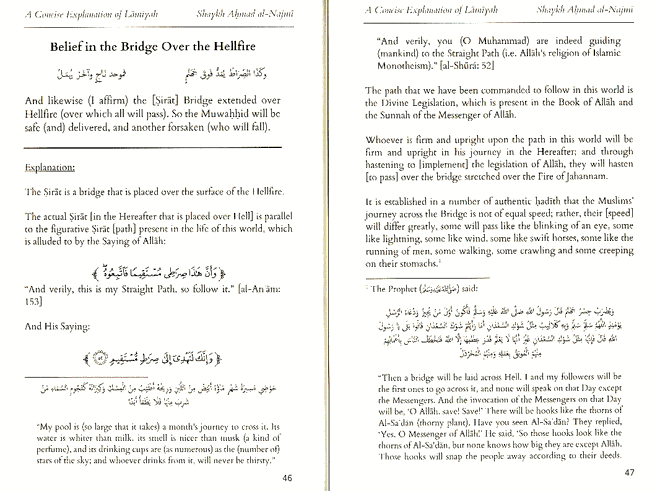 A Concise Explanation of Lāmiyah Shaykh Aḥmad al-Najmī
Belief in the Bridge Over the Hellfire
وَكَذَا الصِّرَاطُ يُمَدُّ فَوْقَ جَهَنَّمٍ فَمُوَحِّدٌ نَاجٍ وَآخَرَ يُهْمَلُ
And likewise (I affirm) the [Ṣirāṭ] Bridge extended over
Hellfire (over which all will pass). So the Muwaḥḥid will be
safe (and) delivered, and another forsaken (who will fall).
Explanation:
The Ṣirāṭ is a bridge that is placed over the surface of the Hellfire.
The actual Ṣirāṭ [in the Hereafter that is placed over Hell] is parallel
to the figurative Ṣirāṭ [path] present in the life of this world, which
is alluded to by the Saying of Allāh:
﴿ وَأَنَّ هَٰذَا صِرَٰطِى مُسْتَقِيمًا فَٱتَّبِعُوهُ ﴾
"And verily, this is my Straight Path, so follow it." [al-Anʿām:
153]
And His Saying:
﴿ وَإِنَّكَ لَتَهْدِىٓ إِلَىٰ صِرَٰطٍ مُّسْتَقِيمٍ ﴾
حَوْضِي مَسِيرَةُ شَهْرٍ مَاؤُهُ أَبْيَضُ مِنْ اللَّبَنِ وَرِيحُهُ أَطْيَبُ مِنْ الْمِسْكِ وَكِيزَانُهُ كَنُجُومِ السَّمَاءِ مَنْ
شَرِبَ مِنْهَا فَلَا يَظْمَأُ أَبَدًا
"My pool is (so large that it takes) a month's journey to cross it. Its
water is whiter than milk, its smell is nicer than musk (a kind of
perfume), and its drinking cups are (as numerous) as the (number of)
stars of the sky; and whoever drinks from it, will never be thirsty."
46
A Concise Explanation of Lāmiyah Shaykh Aḥmad al-Najmī
"And verily, you (O Muhammad) are indeed guiding
(mankind) to the Straight Path (i.e. Allāh's religion of Islamic
Monotheism)." [al-Shūrá: 52]
The path that we have been commanded to follow in this world is
the Divine Legislation, which is present in the Book of Allāh and
the Sunnah of the Messenger of Allāh.
Whoever is firm and upright upon the path in this world will be
firm and upright in his journey in the Hereafter; and through
hastening to [implement] the legislation of Allāh, they will hasten
[to pass] over the bridge stretched over the Fire of Jahannam.
It is established in a number of authentic ḥadīth that the Muslims'
journey across the Bridge is not of equal speed; rather, their [speed]
will differ greatly, some will pass like the blinking of an eye, some
like lightning, some like wind, some like swift horses, some like the
running of men, some walking, some crawling and some creeping
on their stomachs.
The Prophet (ﷺ) said:
"Then a bridge will be laid across Hell. I and my followers will be
the first ones to go across it, and none will speak on that Day except
the Messengers. And the invocation of the Messengers on that Day
will be, 'O Allāh, save! Save!' There will be hooks like the thorns of
Al-Saʿdān (thorny plant). Have you seen Al-Saʿdān? They replied,
'Yes, O Messenger of Allāh.' He said, 'So those hooks look like the
thorns of Al-Saʿdān, but none knows how big they are except Allāh.
Those hooks will snap the people away according to their deeds.
47